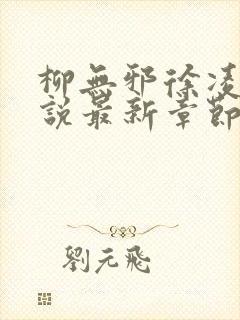 柳無邪徐凌
說最新章節
劉元飛